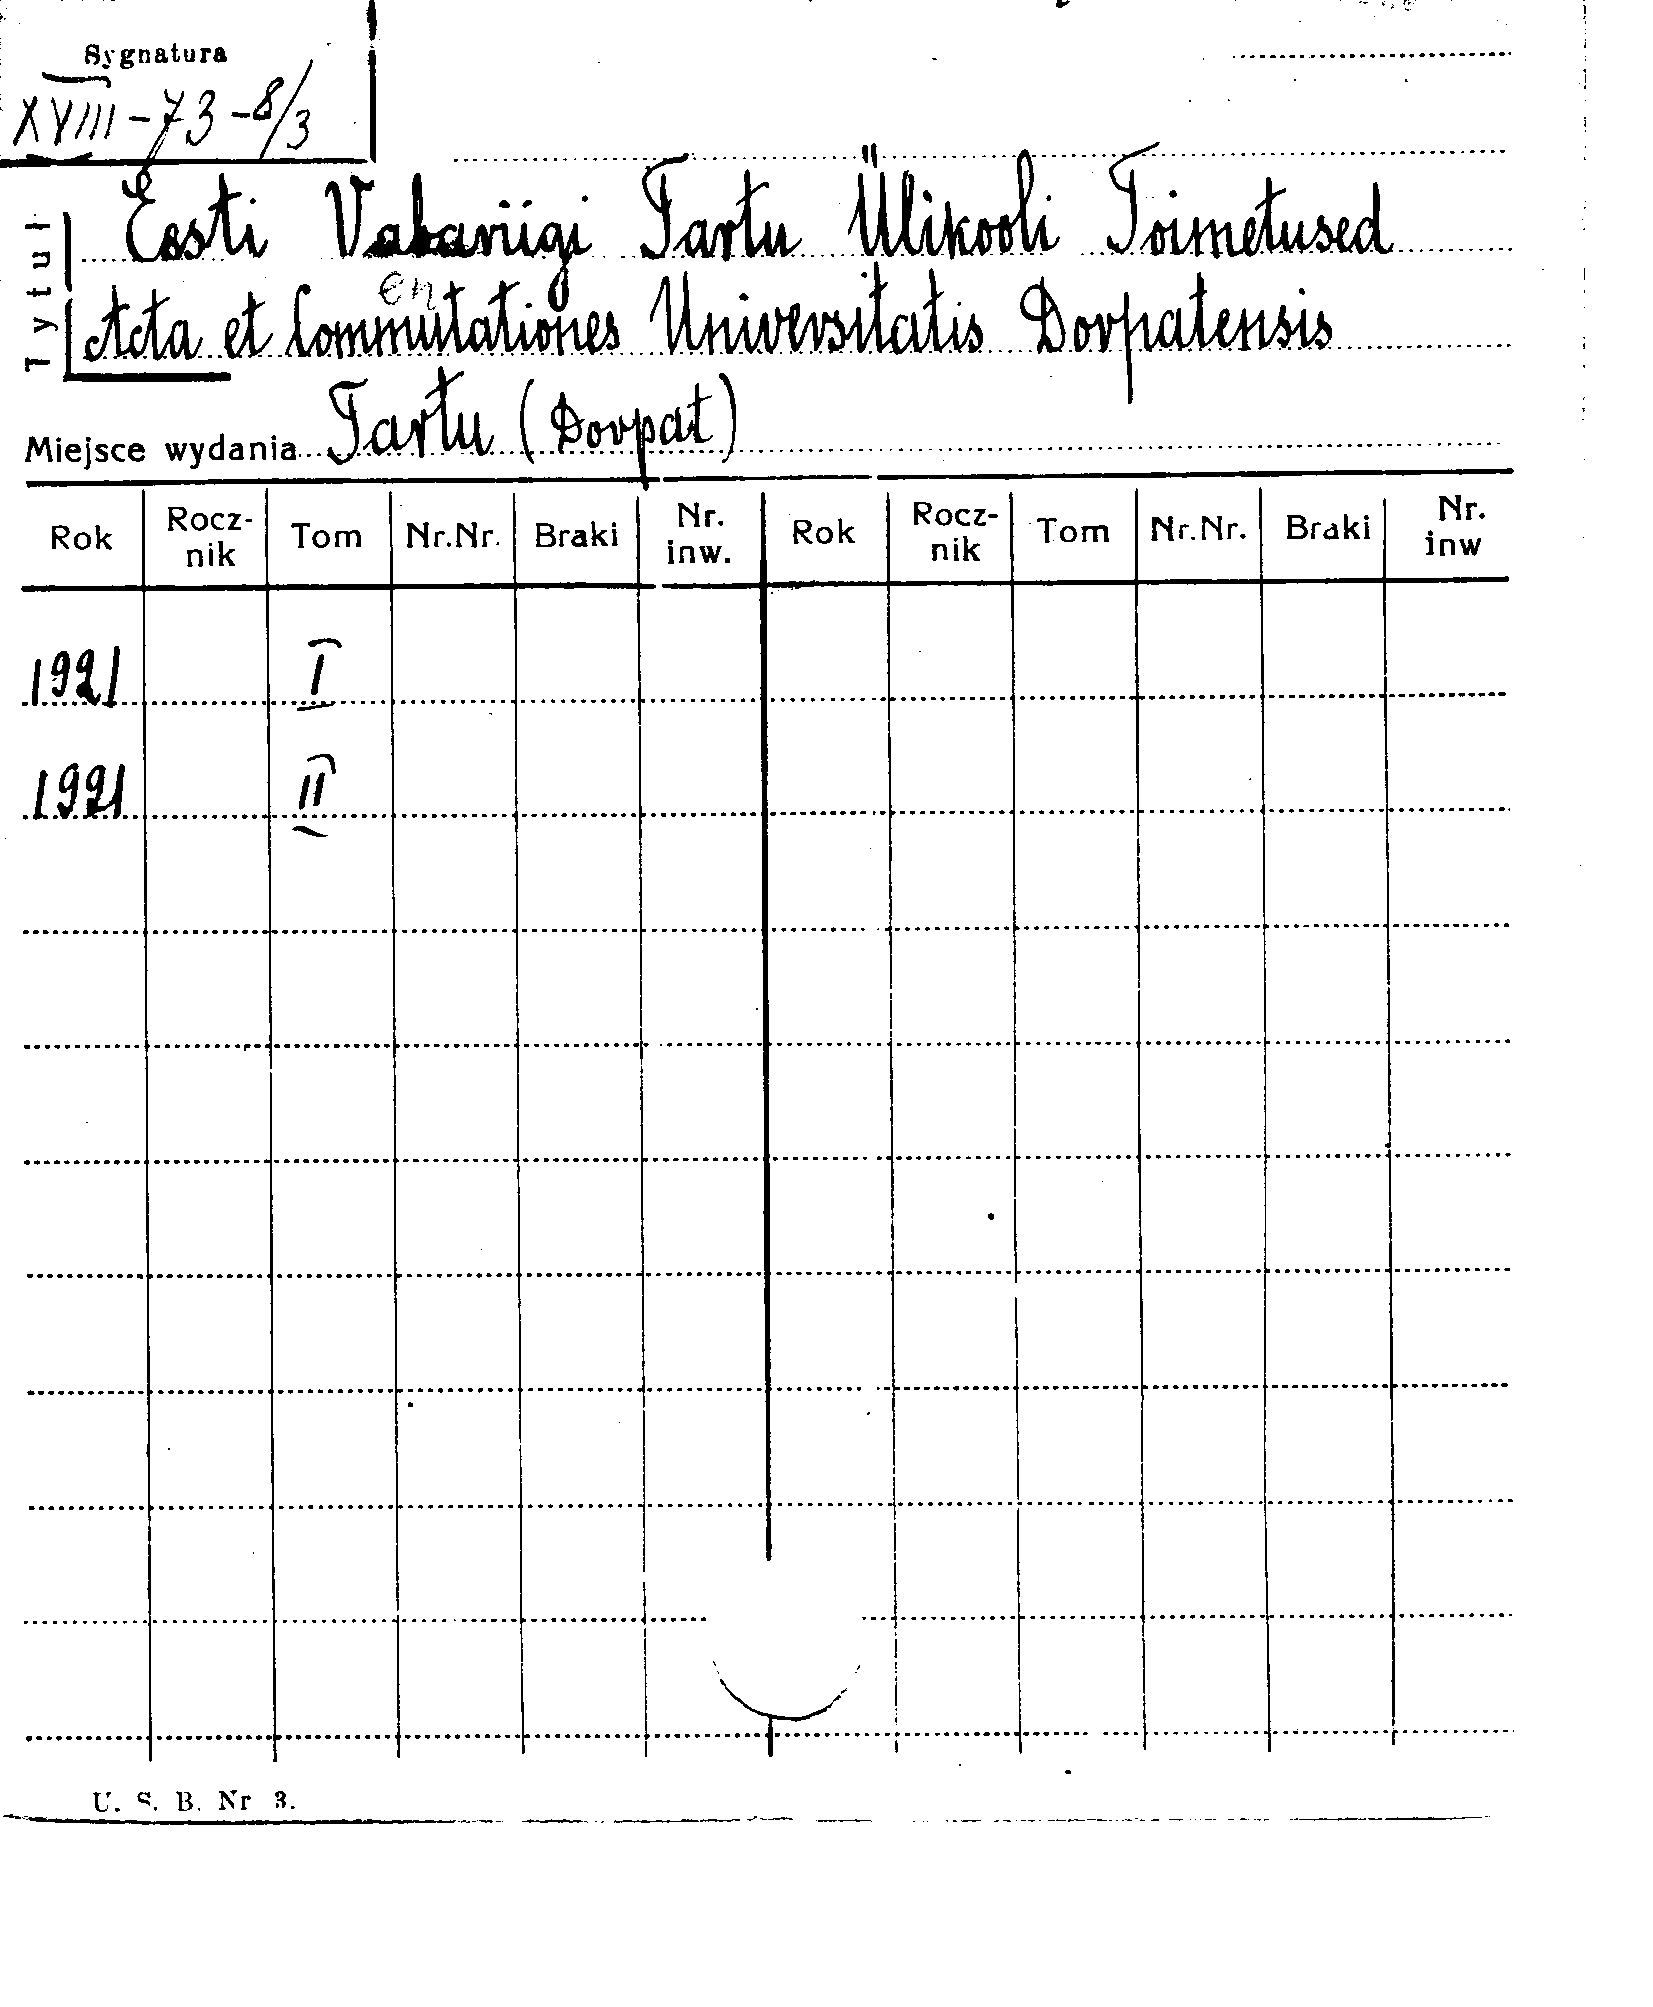 Sygnatura
XVIII-73-8/3
Tytuł
Eesti Vabariigi Tartu Ülikooli Toimetused
en
Acta et Commutationes Universitatis Dorpatensis
Miejsce wydania Tartu (Dorpat)
Rok Rocz-nik Tom Nr.Nr. Braki Nr. inw. Rok Rocz-nik Tom Nr.Nr. Braki Nr. inw
1921 I
1921 II
U. S. B. Nr 3.